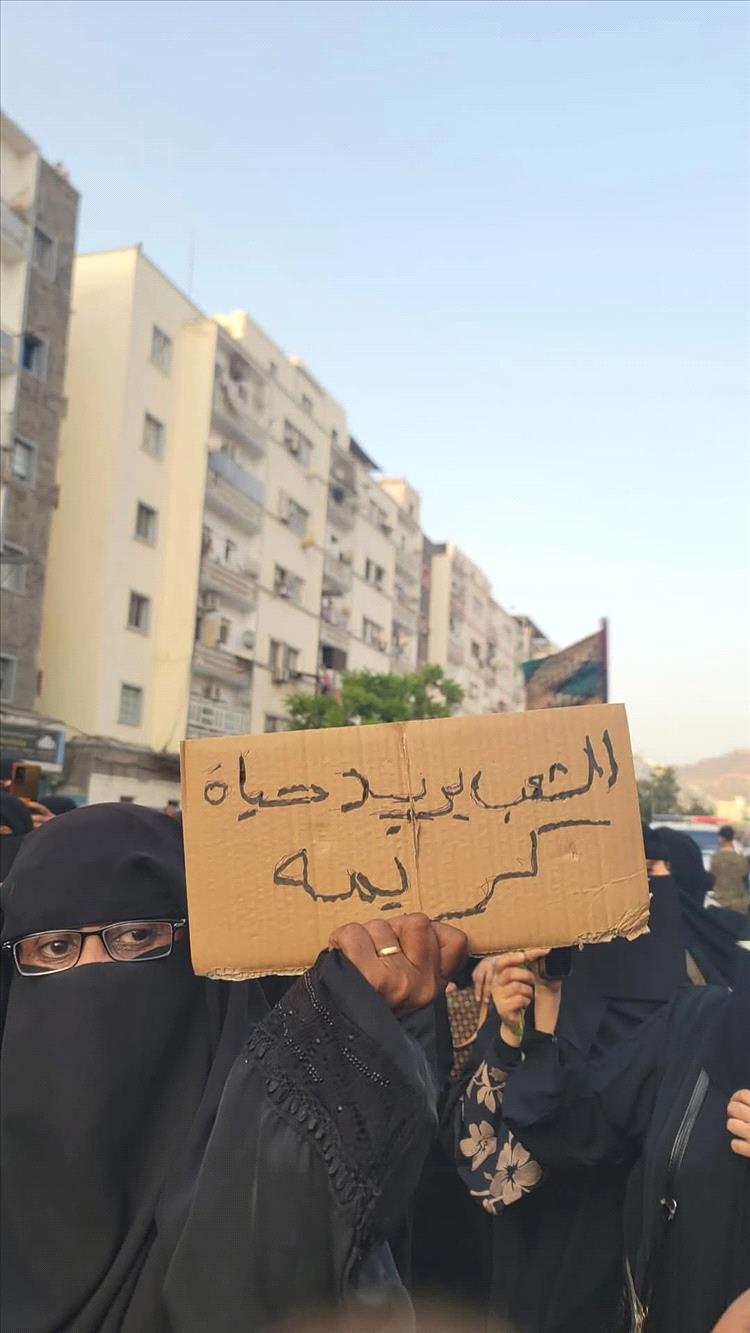 الشعب يريد حياة
كريمه